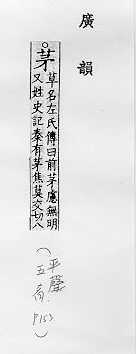 廣韻
茅草名左氏傳曰前茅慮無明
又姓史記秦有茅焦莫交切八
(平聲
五肴
P153)